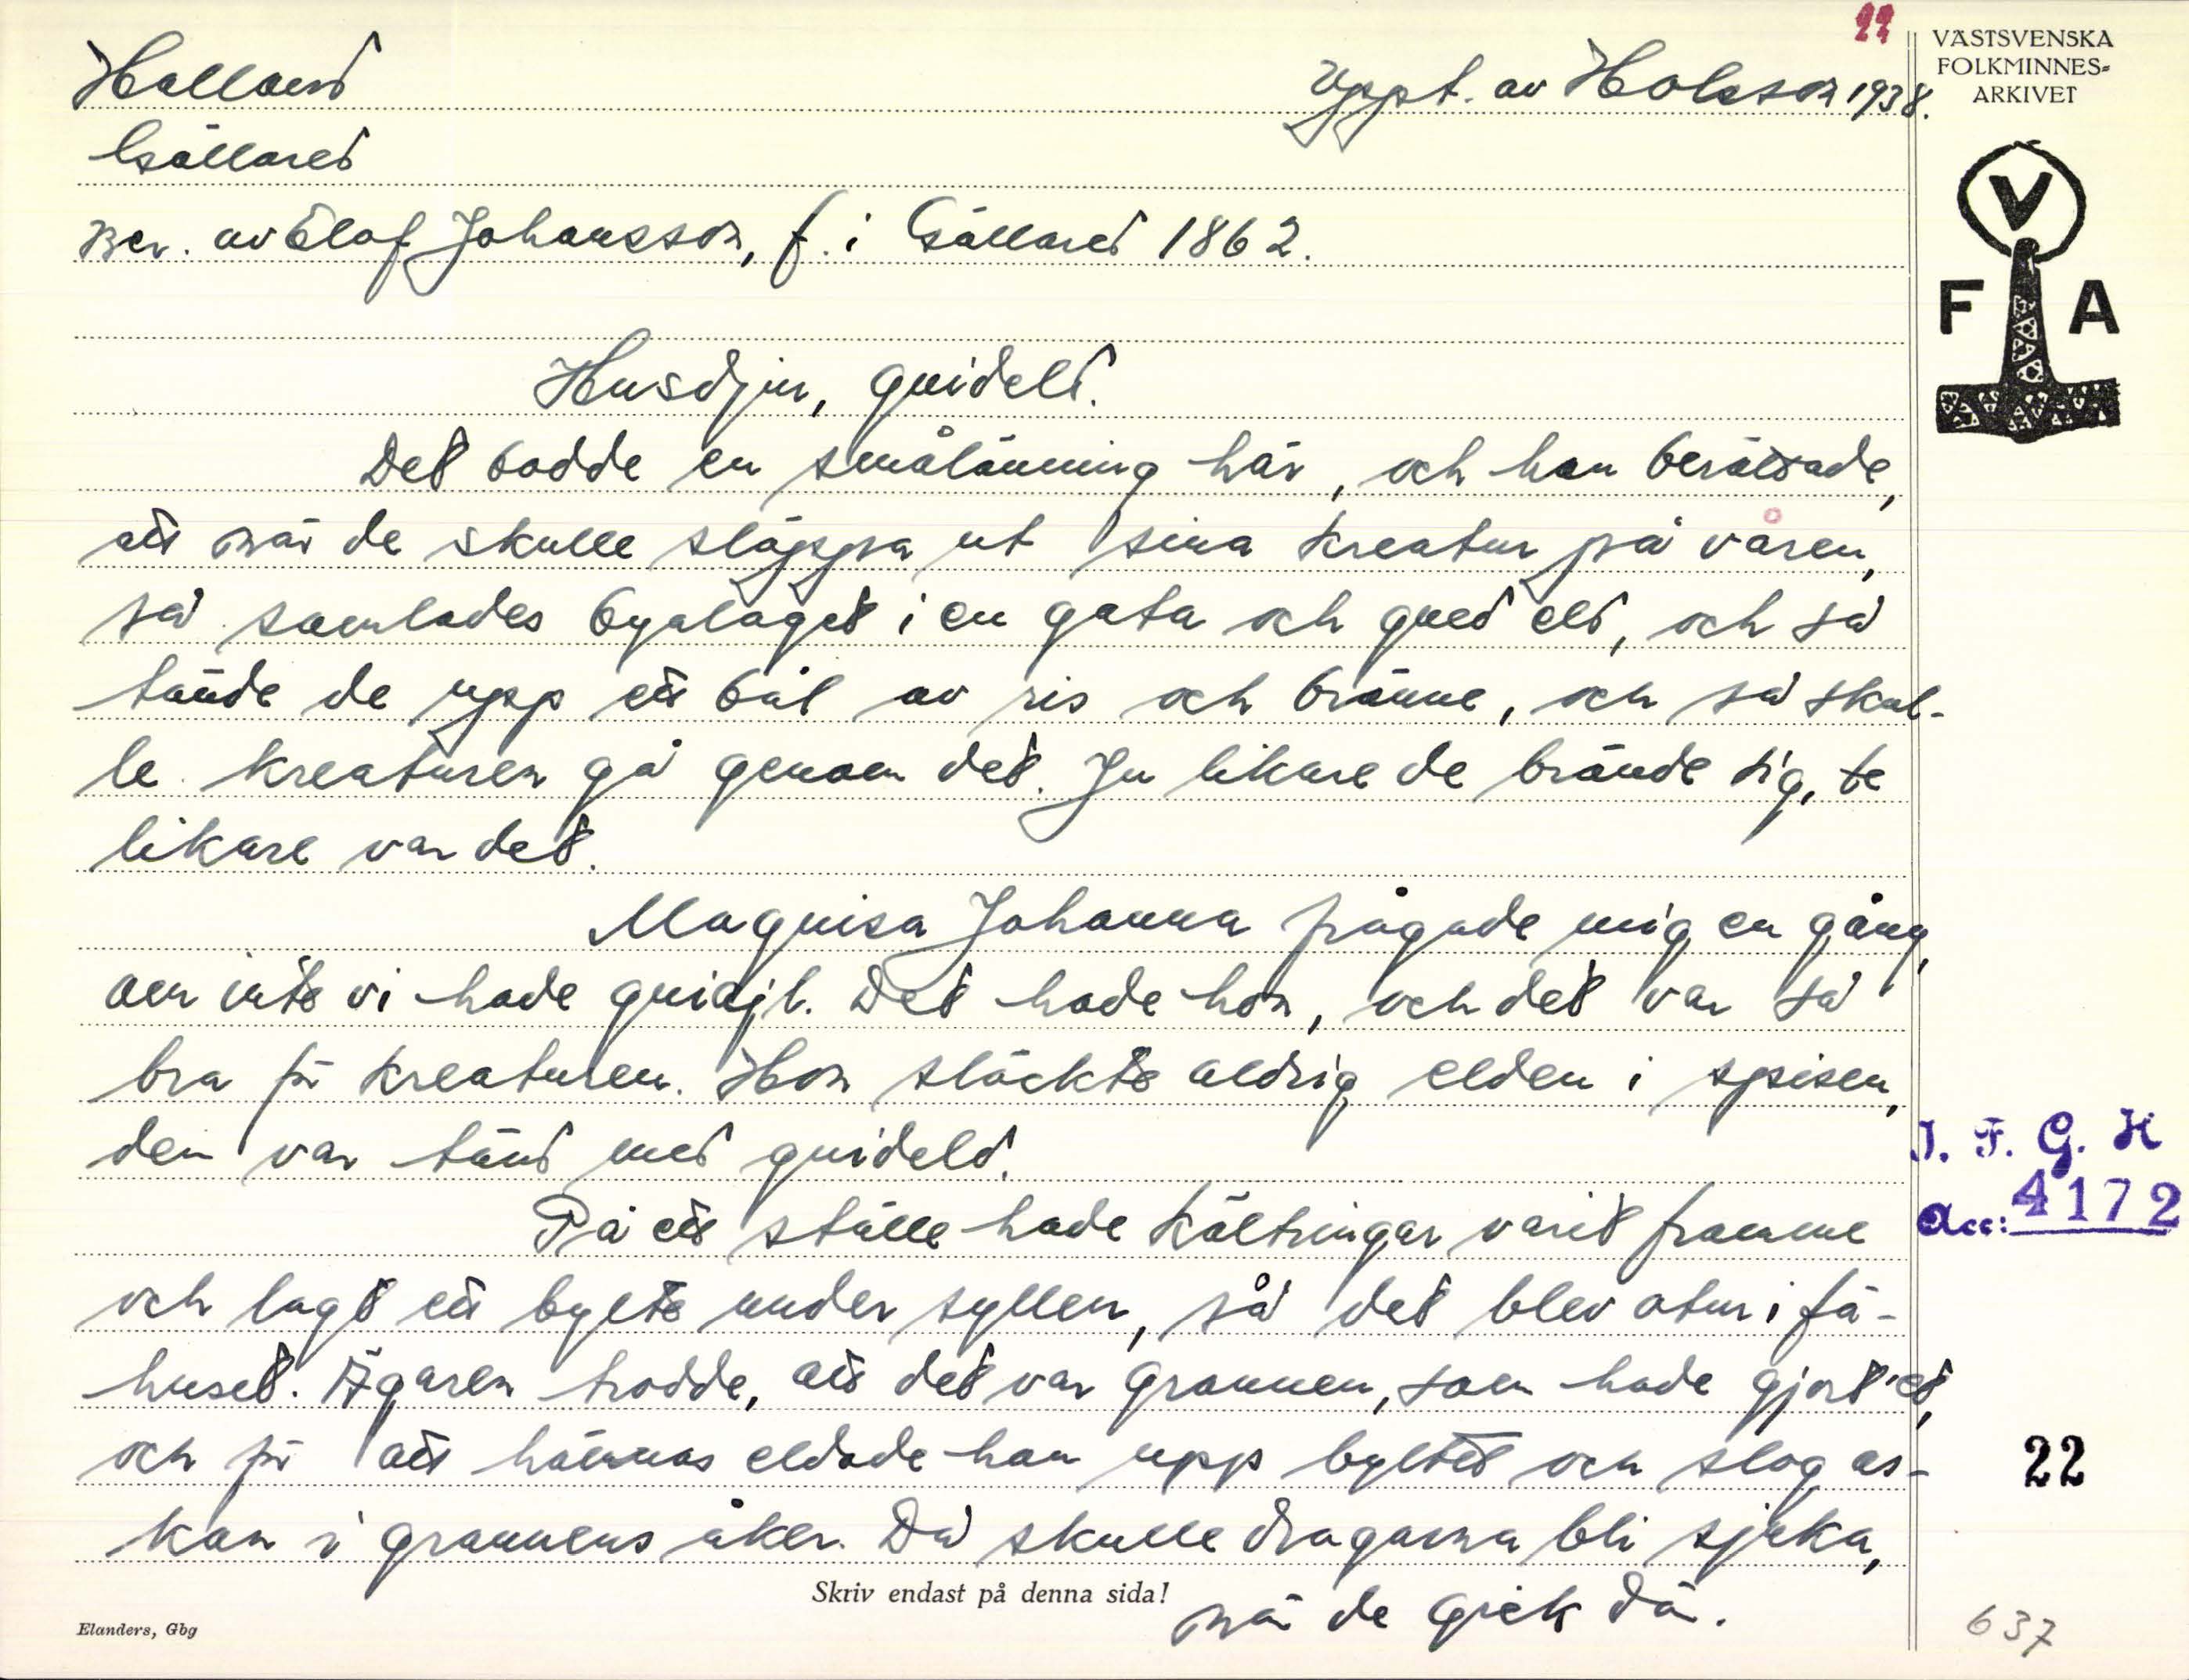 22
VÄSTSVENSKA
FOLKMINNES-
ARKIVET
Halland
Uppt. av Holsson 1938.
Gällared
Ber. av Elof Johansson, f. i Gällared 1862.
V
F A
Husdjur, gnideld.
Det bodde en smålänning här, och han berättade,
att när de skulle släppa ut sina kreatur på våren,
så samlades byalaget i en gata och gned eld, och så
tände de upp ett bål av ris och bränne, och så skul-
le kreaturen gå genom det. Ju likare de brände sig, te
likare var det.
Magnisa Johanna frågade mig en gång,
om inte vi hade gnidjl. Det hade hon, och det var så
bra för kreaturen. Hon släckte aldrig elden i spisen,
den var tänd med gnideld.
På ett ställe hade kältringar varit framme
och lagt ett bylte under syllen, så det blev otur i fä-
huset. Ägaren trodde, att det var grannen, som hade gjort 'et,
och för att hämnas eldade han upp byltet och slog as-
kan i grannens åker. Då skulle dragarna bli sjuka,
när de gick där.
I. F. G. H
Acc: 4172
22
Skriv endast på denna sida!
Elanders, Gbg
637